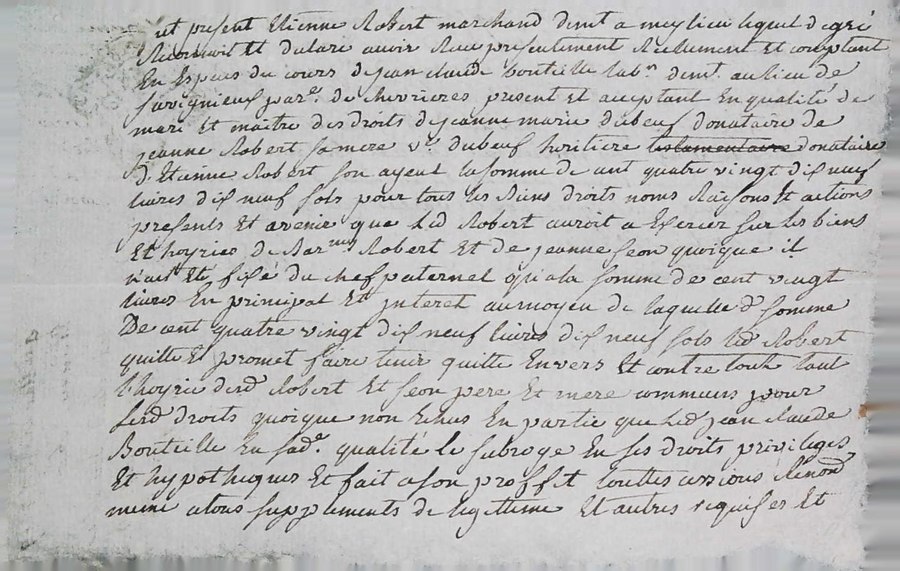 ut present Etienne Robert marchand demt a meylieu lequel de gré
Reconnoit Et declare avoir Reçu presentement Réelement Et comptant
En Especes du cours de jean claude bouteille labr. demt. au lieu de
savignieux parr. de chevrieres, present Et acceptant En qualité de
mari Et maitre des droits de jeanne marie dubeuf donataire de
jeanne Robert sa mere ve. dubeuf heritiere testamentaire donataire
d'Etienne Robert son ayeul la somme de cent quatre vingt dix neuf
livres dix neuf sols pour tous les Biens droits noms Raisons Et actions
presents Et avenir que led Robert auroit a Exercer sur les biens
Et hoyries de Bar.my Robert Et de jeanne feon quoique il
n'ait Eté fixé du chef paternel qu'a la somme de cent vingt
livres En principal Et jnteret au moyen de laquelle de somme
De cent quatre vingt dix neuf livres dix neuf sols led Robert
quitte Et promet faire tenir quitte Envers Et contre tous tant
l'hoyrie desd Robert Et feon pere Et mere communs pour
sesd droits quoique non Echus En partie que led jean claude
Bouteille En sade. qualité le subroge En ses droits privileges
Et hypotheques Et fait a son proffit touttes cessions Renond
meme a tous supplements de legitime Et autres requises Et